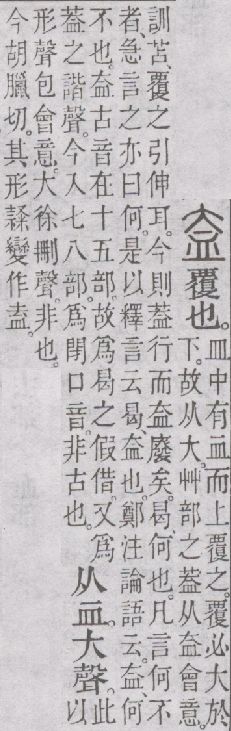 盇 覆也。皿中有血而上覆之。覆必大於
下。故从大。艸部之蓋从盇會意。
訓苫、覆之引伸耳。今則蓋行而盇廢矣。曷、何也。凡言何不
者、急言之亦曰何。是以釋言云曷、盇也。鄭注論語云。盇、何
不也。盇古音在十五部。故爲曷之假借。又爲
蓋之諧聲。今入七八部。爲閉口音。非古也。
从血、大聲。此
以
形聲包會意。大徐刪聲。非也。
今胡臘切。其形隸變作盍。